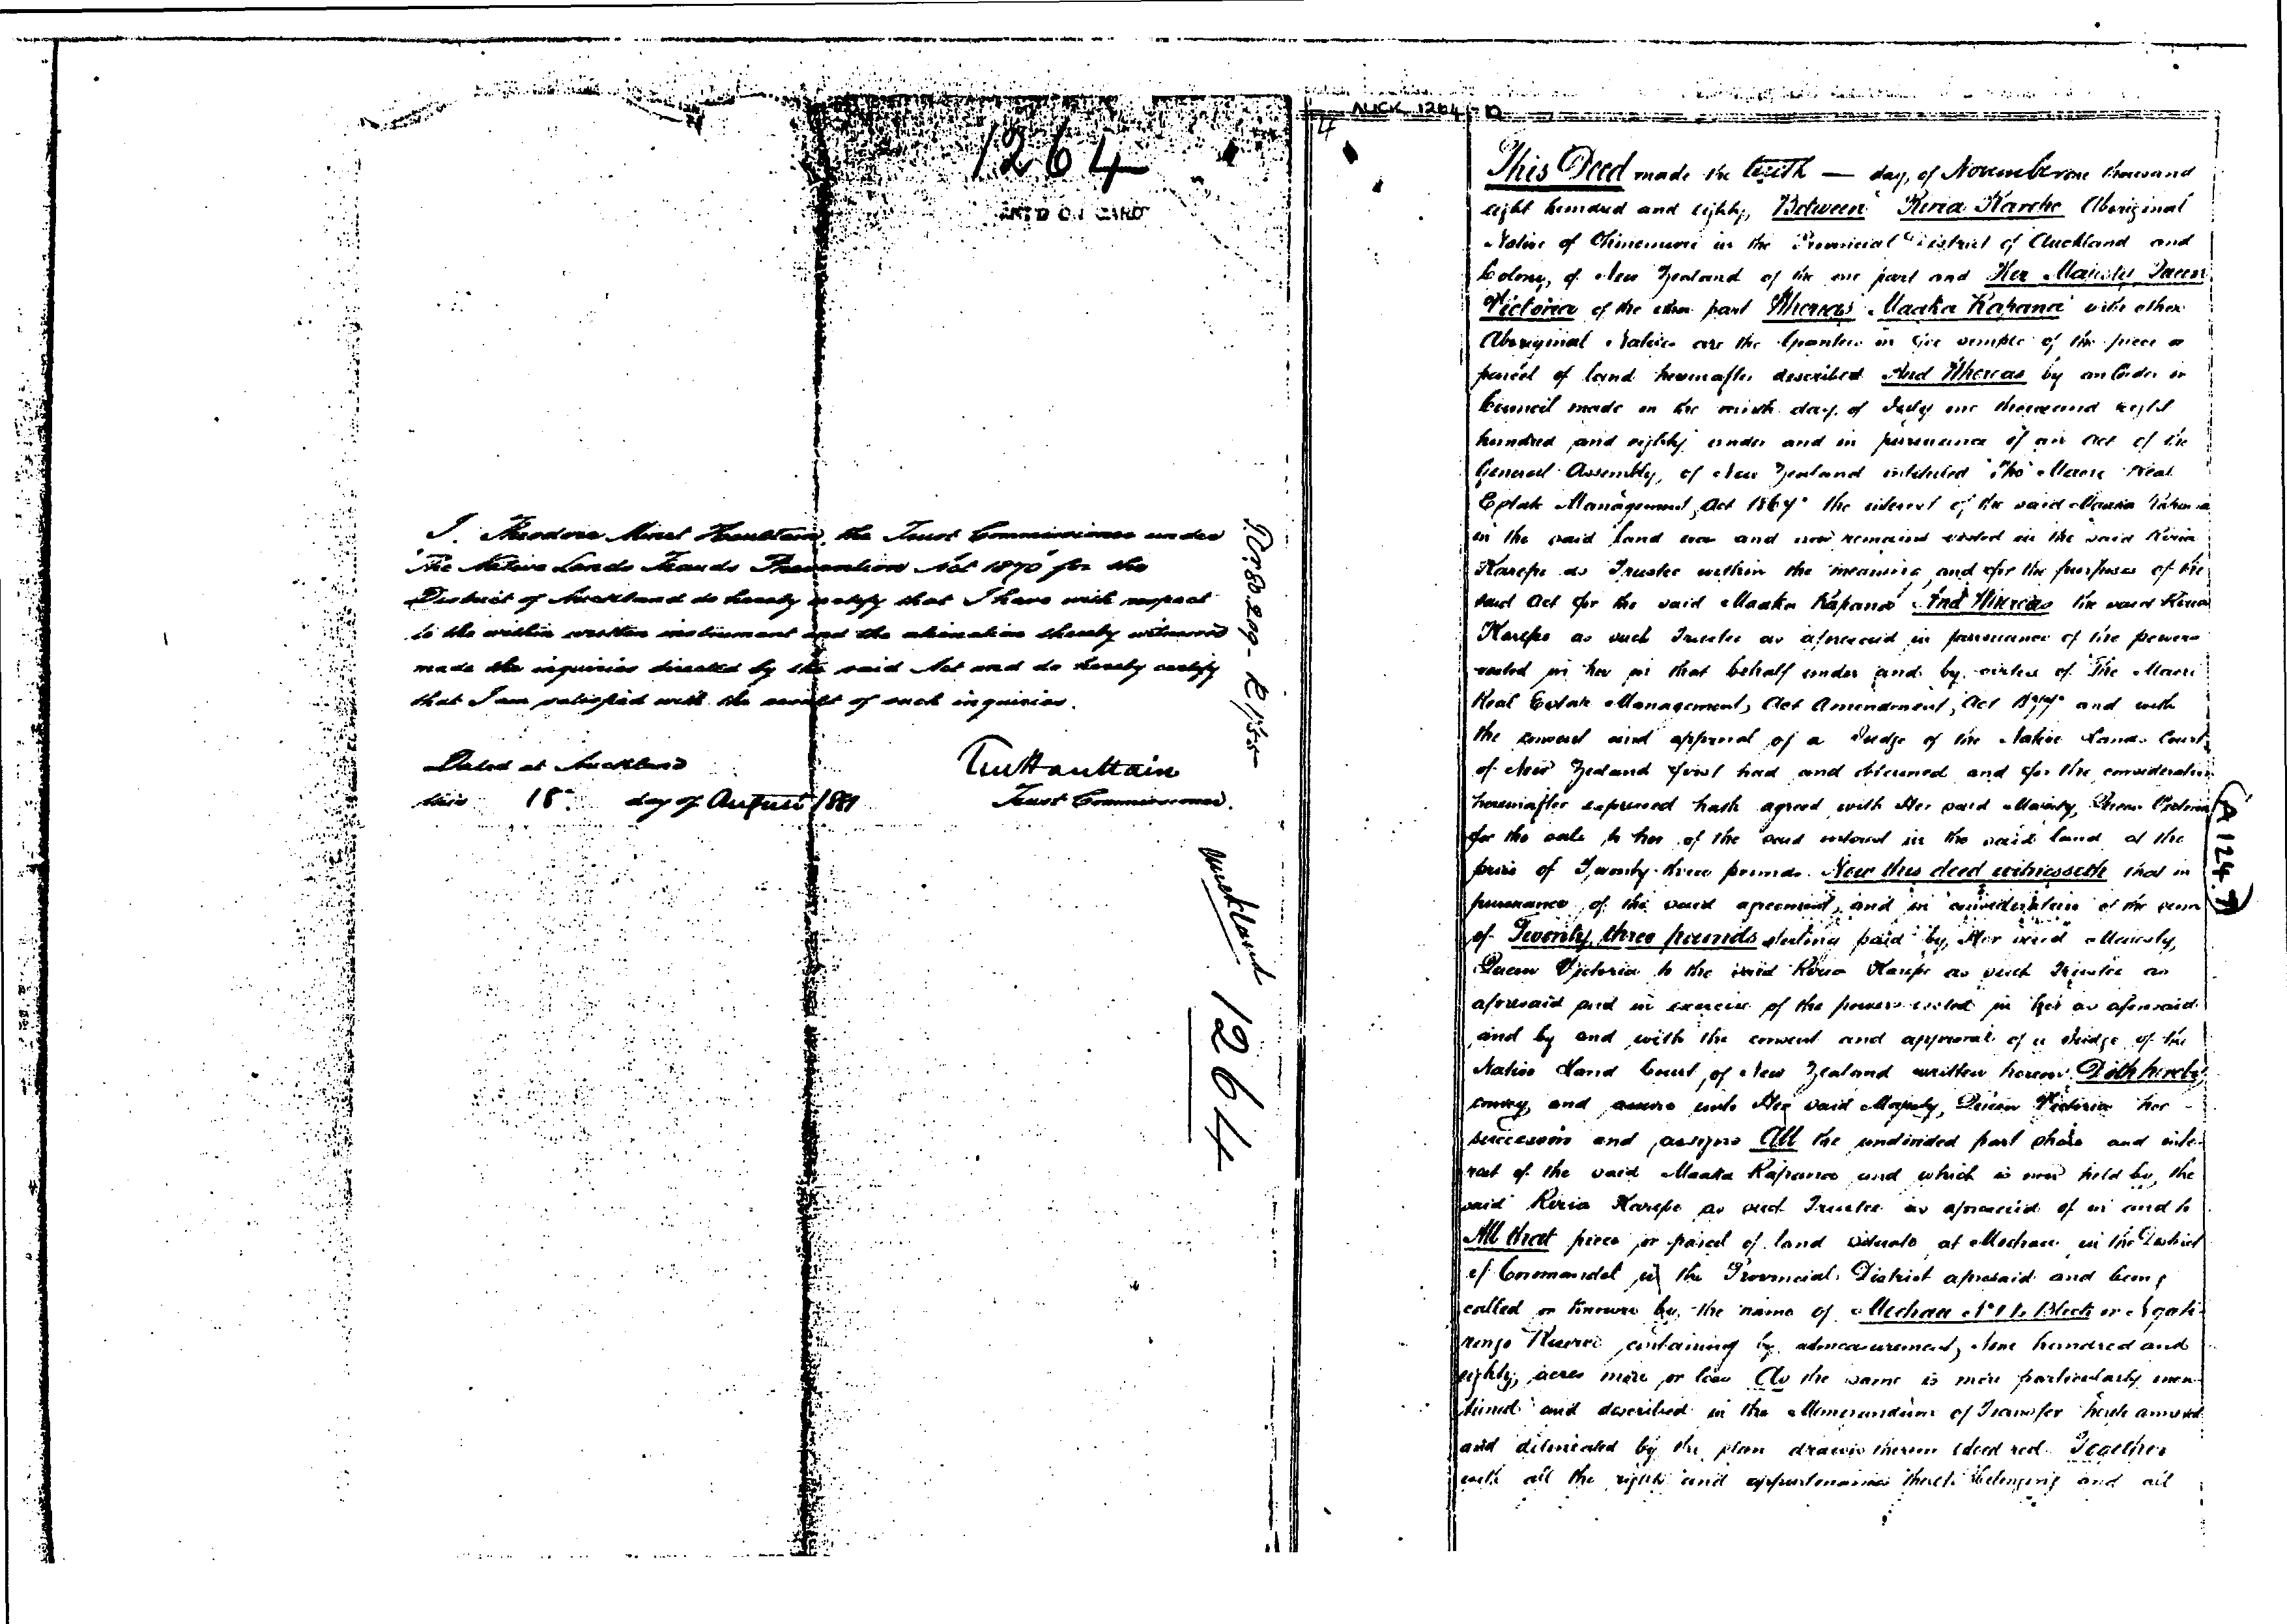 1264
ENT'D ON CARD
I, Theodore Minet Haultain, the Trust Commissioner under
"The Native Lands Frauds Prevention Act 1870" for the
District of Auckland do hereby certify that I have with respect
to the within written instrument and the alienation thereby witnessed
made the inquiries directed by the said Act and do hereby certify
that I am satisfied with the result of such inquiries.
Dated at Auckland
this 18th day of August 1881
TM Haultain
Trust Commissioner.
Auckland 1264
AUCK 1264
This Deed made the tenth — day, of November one thousand
eight hundred and eighty, Between Keria Karepe Aboriginal
Native of Ohinemuri in the Provincial District of Auckland and
Colony, of New Zealand of the one part and Her Majesty Queen
Victoria of the other part Whereas Maaka Kapana with other
Aboriginal Natives are the Grantees in fee simple of the piece or
parcel of land hereinafter described And Whereas by an Order in
Council made on the ninth day, of July one thousand eight
hundred and eighty under and in pursuance of an Act of the
General Assembly, of New Zealand intituled "The Maori Real
Estate Management, Act 1867" the interest of the said Maaka Kapana
in the said land was and now remains vested in the said Keria
Karepe as Trustee within the meaning and for the purposes of the
said Act for the said Maaka Kapana And Whereas the said Keria
Karepe as such Trustee as aforesaid in pursuance of the powers
vested in her in that behalf under and by virtue of "The Maori
Real Estate Management, Act Amendment, Act 1877" and with
the consent and approval of a Judge of the Native Lands Court
of New Zealand first had and obtained and for the consideration
hereinafter expressed hath agreed with Her said Majesty, Queen Victoria
for the sale to her of the said interest in the said land at the
price of Twenty three pounds. Now this deed witnesseth that in
pursuance of the said agreement, and in consideration of the sum
of Twenty, three pounds sterling paid by, Her said Majesty,
Queen Victoria to the said Keria Karepe as such Trustee as
aforesaid and in exercise of the powers vested in her as aforesaid
and by and with the consent and approval of a Judge of the
Native Land Court, of New Zealand written hereon Doth hereby
convey, and assure unto Her said Majesty, Queen Victoria her
successors and assigns All the undivided part share and inte-
rest of the said Maaka Kapana and which is now held by, the
said Keria Karepe as such Trustee as aforesaid of in and to
All that piece or parcel of land situate at Moehau in the District
of Coromandel in the Provincial District aforesaid and being
called or known by, the name of Moehau No 1 Block or Ngati
rongo containing by admeasurement, One hundred and
eighty, acres more or less As the same is more particularly men-
tioned and described in the Memorandum of Transfer hereto annexed
and delineated by the plan drawn thereon edged red Together
with all the rights and appurtenances thereto belonging and all